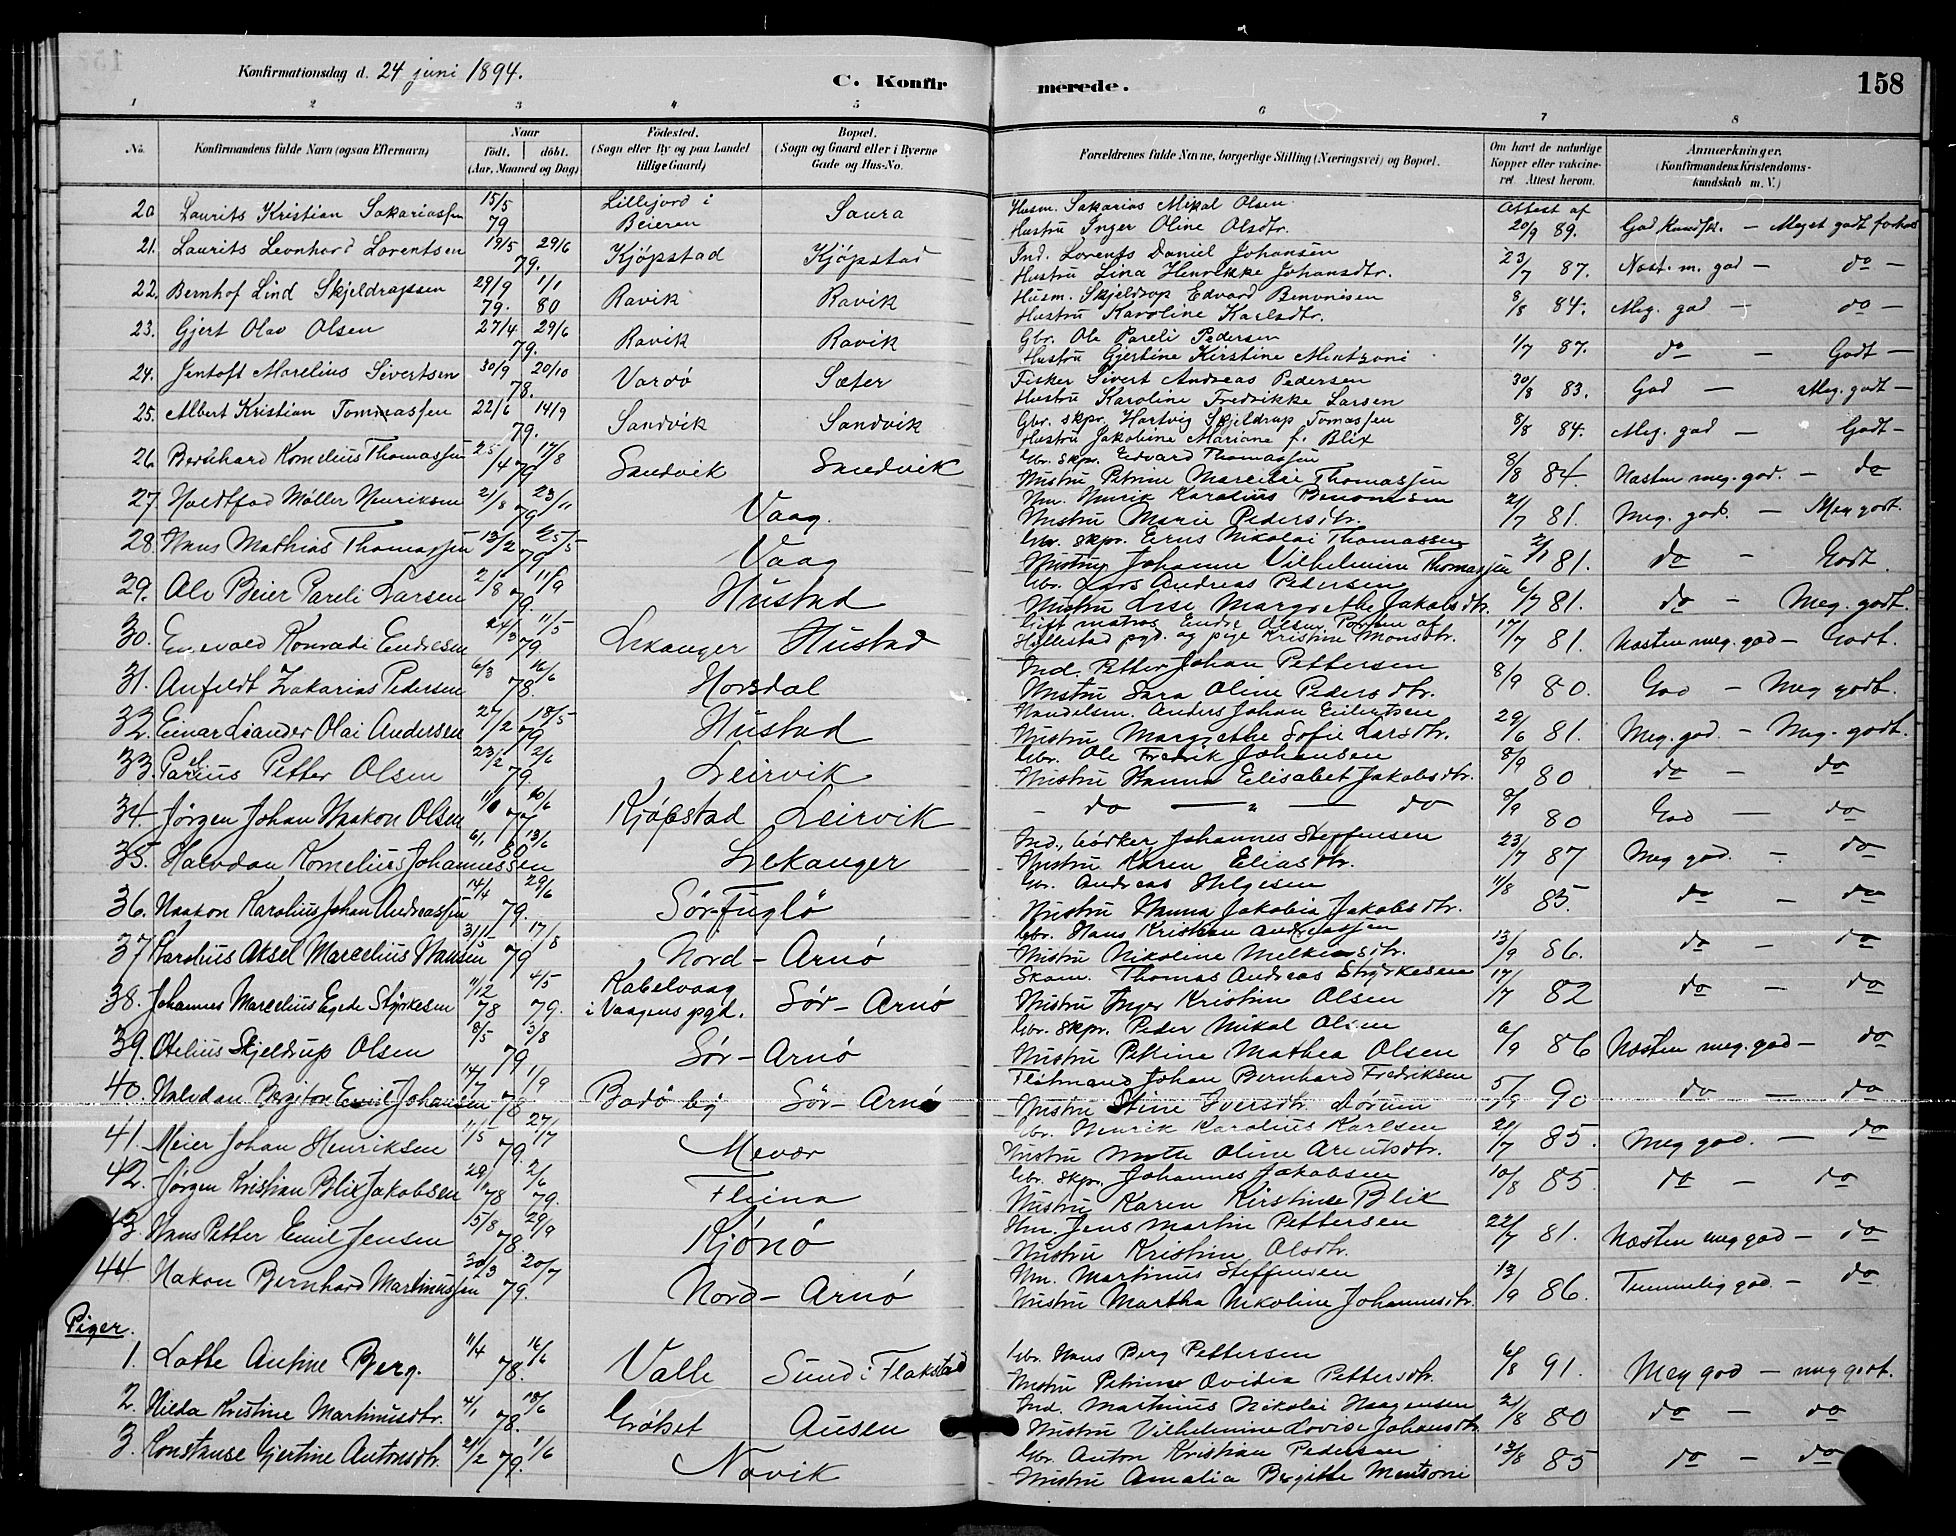 Konfirmationsdag d. 24 juni 1894.
C. Konfirmerede.
158
1 2 3 4 5 6 7 8
No. Konfirmandens fulde Navn (ogsaa Efternavn) Naar födt. döbt. (Aar, Maaned og Dag) Födested. (Sogn eller By og paa Landet tillige Gaard) Bopæl. (Sogn og Gaard eller i Byerne Gade og Hus-No. Forældrenes fulde Navne, borgerlige Stilling (Næringsvei) og Bopæl. Om havt de naturlige Kopper eller vakcineret. Attest herom. Anmærkninger. (Konfirmandens Kristendomskundskab m. V.)
20 Laurits Kristian Sakariassen 15/5 79 Lillejord i Beieren Saura Husm. Sakarias Mikal Olsen Hustru Inger Oline Olsdtr. Attest af 20/9 89. God Kundsk. – Meget godt forhold
21. Laurits Leonhard Lorentsen 19/5 29/6 79. Kjöpstad Kjöpstad Ind. Lorents Daniel Johansen Hustru Lina Henrikke Johansdtr. 23/7 87. Næst. m. god – do –
22. Bernhof Lind Skjeldrapssen 29/9 79. 1/1 80 Ravik Ravik Husm. Skjeldrop Edvard Benonisen Hustru Karoline Karlsdtr. 8/8 84. Meg. god – do –
23. Gjert Olav Olsen 27/4 29/6 79. Ravik Ravik Gbr. Ole Pareli Pedersen Hustru Gjertine Kirstine Mentzoni 1/7 87. do – Godt –
24. Jentoft Marelius Sivertsen 30/9 20/10 78. Vardö Sæter Fisker Sivert Andreas Pedersen Hustru Karoline Fredrikke Larsen 30/8 83. God – Meg. godt –
25. Albert Kristian Tommassen 22/6 14/9 79. Sandvik Sandvik Gbr. skpr. Hartvig Skjeldrup Tomassen Hustru Jakobine Mariane f. Blix 8/8 84. Meg. god – Godt –
26 Bernhard Kornelius Thomassen 25/4 17/8 79 Sandvik Sandvik Gbr. skpr. Edvard Thomassen Hustru Petrine Thomassen 8/8 84. Næsten meg. god. – do
27. Møller Henriksen 21/8 23/11 79 Vaag. Hm. Henrik Karolius Benonisen Hustru Marie Pedersdtr. 21/7 81. Meg. god. – Meg godt.
28. Hans Mathias Thomassen 13/2 25/5 79 Vaag Gbr. skpr. Nikolai Thomassen Hustru Johanne Vilhelmine Thomassen 81. do – Godt.
29. Alv Beier Pareli Larsen 2/8 11/9 79. Hustad Gbr. Lars Andreas Pedersen Hustru Lise Margrethe Jakobsdtr. 6/7 81. do – Meg. godt.
30. Enevald Konradi Endresen 24/3 11/5 79. Lekanger Hustad ligt matros Endre Olsen af Hellestad pgd. og pige Kristine Monsdtr. 17/7 81. Næsten meg. god – Godt.
31. Anfeldt Zakarias Pedersen 6/3 16/6 78. Horsdal Ind. Petter Johan Pettersen Hustru Sara Oline Pedersdtr. 8/9 80. God – Meg godt.
32. Einar Leander Olai Andersen 27/2 18/5 79 Hustad Handelsm. Anders Johan Eilertsen Hustru Margrethe Sofie Larsdtr. 29/6 81. Meg. god. – Meg. godt.
33. Parelius Petter Olsen 23/2 2/6 79. Leirvik Gbr. Ole Fredrik Johansen Hustru Hanna Elisabet Jakobsdtr. 8/9 80 do – do
34. Jørgen Johan Haakon Olsen 10/6 77 Kjøbstad Leirvik – do – " – do 9/9 80 God – do
35. Halvdan Kornelius Johannessen 6/1 13/6 80 Lekanger Ind., bödker Johannes Steffensen Hustru Karen Eliasdtr. 23/7 87 Meg god. – do
36. Haakon Karolius Johan Andreassen 14/4 29/6 79. Sör-Fuglö Gbr. Andreas Helgesen Hustru Hanna Jakobia Jakobsdtr. 11/8 85. do – do
37 Karolius Aksel Marcelius Hansen 31/5 17/8 79 Nord-Arnö Gbr. Hans Kristian Andreassen Hustru Nikoline 13/9 86. do – do
38. Johannes Marcelius Egede Styrkesen 11/12 78 4/5 79. Kabelvaag i Vaagens pgd. Sör-Arnö Skom. Thomas Andreas Styrkesen Hustru Inger Kristine Olsen 17/7 82 do – do
39. Otelius Skjeldrup Olsen 8/5 3/8 79 Sör-Arnö Gbr. skpr. Peder Mikal Olsen Hustru Petrine Mathea Olsen 6/9 86 Næsten meg. god – do
40. Halvdan Birgiton Emil Johansen 14/7 1/9 78 Bodö by Sör-Arnö Johan Bernhard Fredriksen Hustru Stine Iversdtr. Lörum 5/9 90 do – do
41. Meier Johan Henriksen 11/5 27/7 79. Mevær Gbr. Henrik Karolius Karlsen Hustru Mette Oline Arentsdtr. 21/7 85. Meg god. – do
42. Jørgen Kristian Blix Jakobsen 78 2/6 79. Fleina Gbr. skpr. Johannes Jakobsen Hustru Karen Kirstine Blix 10/8 85 do – do
43. Hans Petter Emil Jensen 15/8 29/9 78. Kjönö Hm Jens Martin Pettersen Hustru Kristine Olsdtr. 22/7 81. Næsten meg god – do
44 Hakon Bernhard Martinussen 30/3 20/7 79. Nord-Arnö Hm. Martinus Steffensen Hustru Martha Nikoline Johannesdtr. 13/9 86. Temmelig god – do
Piger.
1. Lotte Antine Berg. 11/4 16/6 78. Valle Sund i Flakstad Gbr. Hans Berg Pettersen Hustru Petrine Ovidia Pettersdtr. 6/8 91. Meg god – meg godt.
2. Hilda Kristine Martinusdtr. 4/1 18/6 78. Grötset Ausen Ind. Martinus Nikolai Haagensen Hustru Vilhelmine Lovise Johansdtr. 21/8 80 do – do
3. Konstanse Gjertine Antonsdtr. 21/2 1/6 79. Novik Gbr. Anton Kristian Pedersen Hustru Amalia Bergitte Mentsoni 13/8 85 do – do